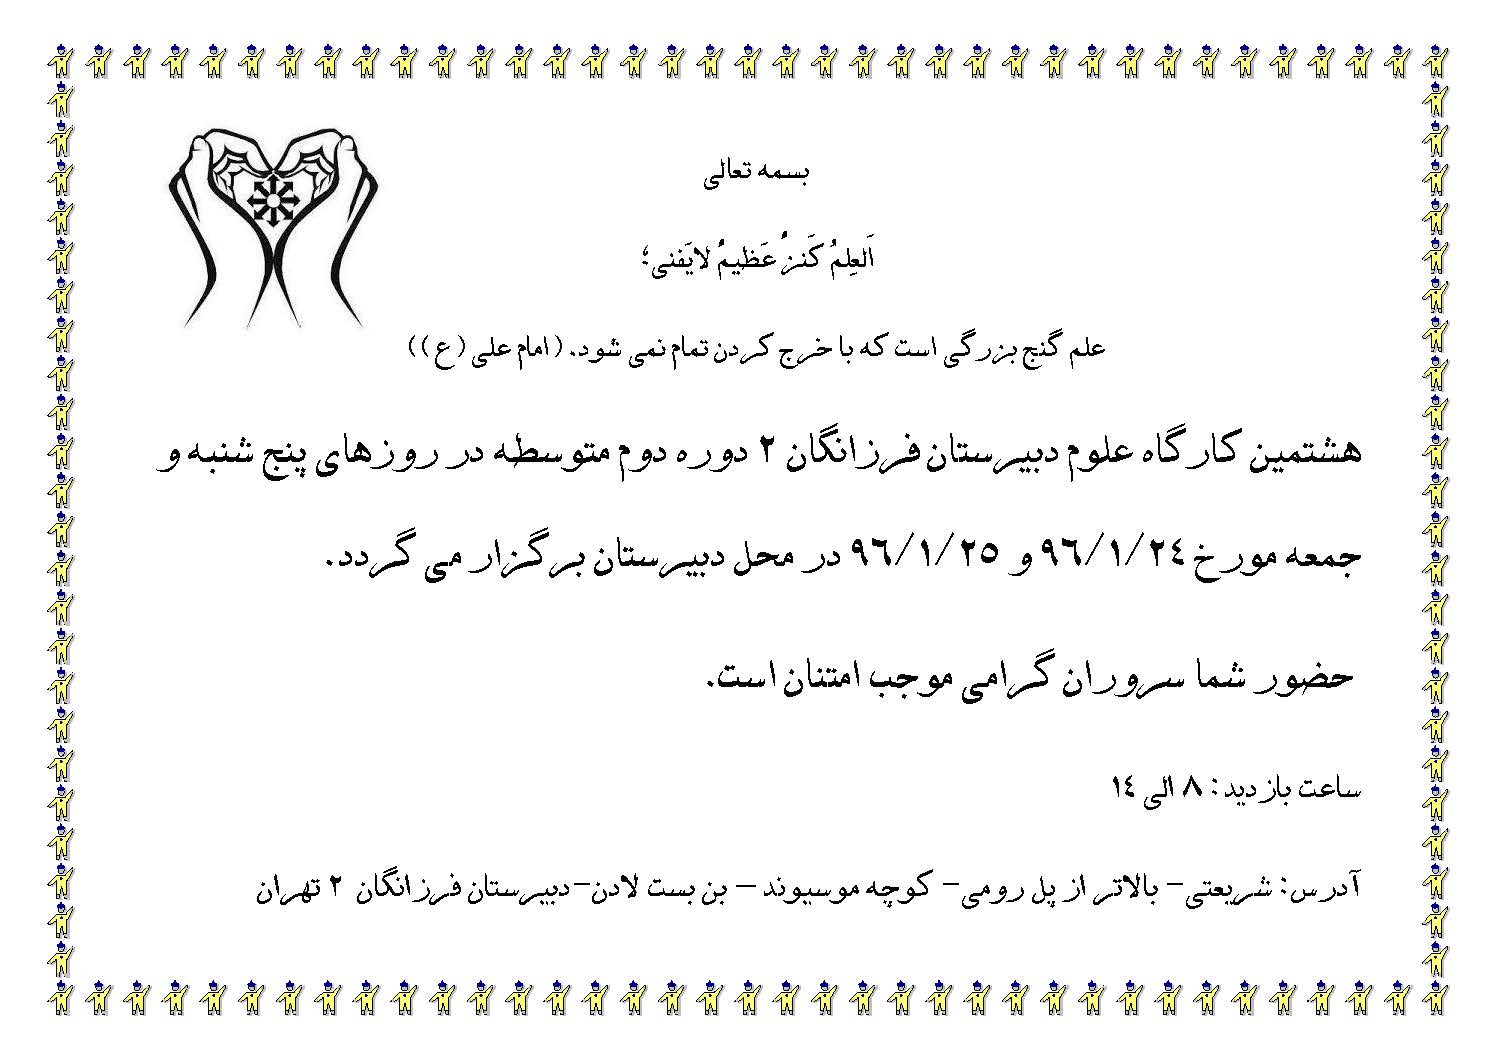 بسمه تعالی
اَلعِلمُ كَنزٌ عَظیمٌ لایَفنی؛
علم گنج بزرگی است که با خرج کردن تمام نمی شود. (امام علی (ع))
هشتمین کارگاه علوم دبیرستان فرزانگان ۲ دوره دوم متوسطه در روزهای پنج شنبه و
جمعه مورخ ۹۶/۱/۲۴ و ۹۶/۱/۲۵ در محل دبیرستان برگزار می گردد.
حضور شما سروران گرامی موجب امتنان است.
ساعت بازدید: ۸ الی ۱۴
آدرس: شریعتی- بالاتر از پل رومی- کوچه موسیوند – بن بست لادن-دبیرستان فرزانگان ۲ تهران